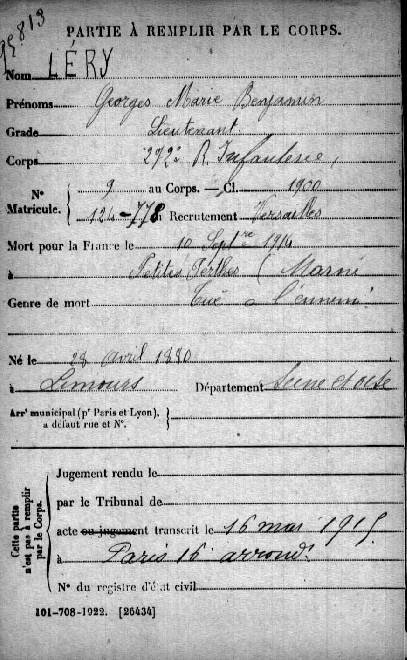 95.813
PARTIE À REMPLIR PAR LE CORPS.
Nom LÉRY
Prénoms Georges Marie Benjamin
Grade Lieutenant
Corps 272e R. Infanterie,
N° Matricule. { 9 au Corps. — Cl. 1900
124-778 au Recrutement Versailles
Mort pour la France le 10 Septre 1914
à Petites Perthes (Marne
Genre de mort Tué à l'ennemi
Né le 28 avril 1880
à Limours Département Seine et Oise
Arrt municipal (pr Paris et Lyon), à défaut rue et N°. }
Cette partie n'est pas à remplir par le Corps.
Jugement rendu le
par le Tribunal de
acte ou jugement transcrit le 16 mai 1915
à Paris 16e arrondt
N° du registre d'état civil
101-708-1922. [26434]